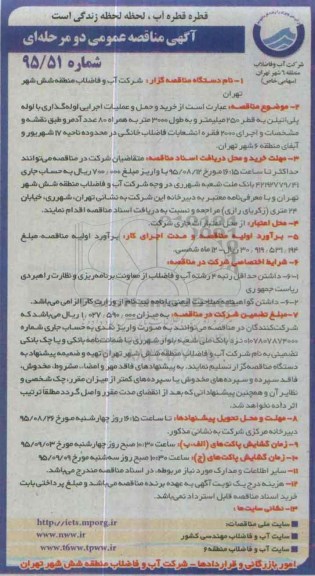 قطره قطره آب ، لحظه لحظه زندگی است
آگهی مناقصه عمومی دو مرحله‌ای
شماره ۹۵/۵۱
شرکت آب و فاضلاب
منطقه ۶ شهر تهران
(سهامی خاص)
۱- نام دستگاه مناقصه گزار : شرکت آب و فاضلاب منطقه شش شهر
تهران
۲- موضوع مناقصه: عبارت است از خرید و حمل و عملیات اجرایی لوله‌گذاری با لوله
پلی‌اتیلن به قطر ۲۵۰ میلیمتر و بطول ۳۰۰۰ متر به همراه ۸۰ عدد آدم‌رو طبق نقشه و
مشخصات و اجرای ۲۰۰۰ فقره انشعابات فاضلاب خانگی در محدوده ناحیه ۱۷ شهریور و
آبفای منطقه ۶ شهر تهران.
۳- مهلت خرید و محل دریافت اسناد مناقصه: متقاضیان شرکت در مناقصه می‌توانند
حداکثر تا ساعت ۱۶:۱۵ مورخ ۹۵/۰۸/۱۲ با واریز مبلغ ۷۰۰,۰۰۰ ریال به حساب جاری
بانک ملت شعبه شهرری در وجه شرکت آب و فاضلاب منطقه شش شهر
تهران و با معرفی‌نامه معتبر به دبیرخانه این شرکت به نشانی تهران، شهرری، خیابان
۲۴ متری (زکریای رازی) مراجعه و نسبت به دریافت اسناد مناقصه اقدام نمایند.
۴- محل اعتبار: از محل اعتبارات جاری شرکت.
۵- برآورد اولیه مناقصه و مدت اجرای کار: برآورد اولیه مناقصه مبلغ
ریال - ۱۲ ماه شمسی
۶- شرایط اختصاصی شرکت در مناقصه:
۶-۱- داشتن حداقل رتبه ۴ رشته آب و فاضلاب از معاونت برنامه‌ریزی و نظارت راهبردی
ریاست جمهوری
۶-۲- داشتن گواهینامه صلاحیت ایمنی از وزارت کار الزامی می‌باشد.
۷- مبلغ تضمین شرکت در مناقصه: به میزان ۱,۰۲۷,۵۹۰,۰۰۰ ریال می‌باشد که
شرکت‌کنندگان در مناقصه می‌توانند به صورت واریز نقدی به حساب جاری شماره
نزد بانک ملی شعبه بلوار شهرری یا ضمانتنامه بانکی و یا چک بانکی
تضمینی به نام شرکت آب و فاضلاب منطقه شش شهر تهران تهیه و ضمیمه پیشنهاد به
دستگاه مناقصه‌گزار تسلیم نمایند. به پیشنهادهای فاقد مهر و امضاء، مشروط، مخدوش،
فاقد سپرده و سپرده‌های مخدوش یا سپرده‌های کمتر از میزان مقرر، چک شخصی و
نظایر آن و همچنین پیشنهاداتی که بعد از انقضای مدت مقرر واصل گردد مطلقاً ترتیب
اثر داده نخواهد شد.
۸- مهلت و محل تحویل پیشنهادها: تا ساعت ۱۶:۱۵ روز چهارشنبه مورخ ۹۵/۰۸/۲۶
دبیرخانه مرکزی شرکت به نشانی مذکور.
۹- زمان گشایش پاکت‌های (الف-ب): ساعت ۱۰:۳۰ صبح روز چهارشنبه مورخ ۹۵/۰۹/۰۳
۱۰- زمان گشایش پاکت‌های (ج): ساعت ۱۰:۳۰ صبح روز سه‌شنبه مورخ ۹۵/۰۹/۰۹
۱۱- سایر اطلاعات و مدارک مورد نیاز مربوطه، در اسناد مناقصه مندرج می‌باشد.
۱۲- هزینه درج یک نوبت آگهی به عهده برنده مناقصه می‌باشد و مبلغ پرداختی بابت
خرید اسناد مناقصه قابل استرداد نمی‌باشد.
۱۳- نشانی سایت‌ها :
سایت ملی مناقصات: http://iets.mporg.ir
سایت آب و فاضلاب مهندسی کشور www.nww.ir
سایت آب و فاضلاب منطقه ۶ www.t6ww.tpww.ir
امور بازرگانی و قراردادها - شرکت آب و فاضلاب منطقه شش شهر تهران